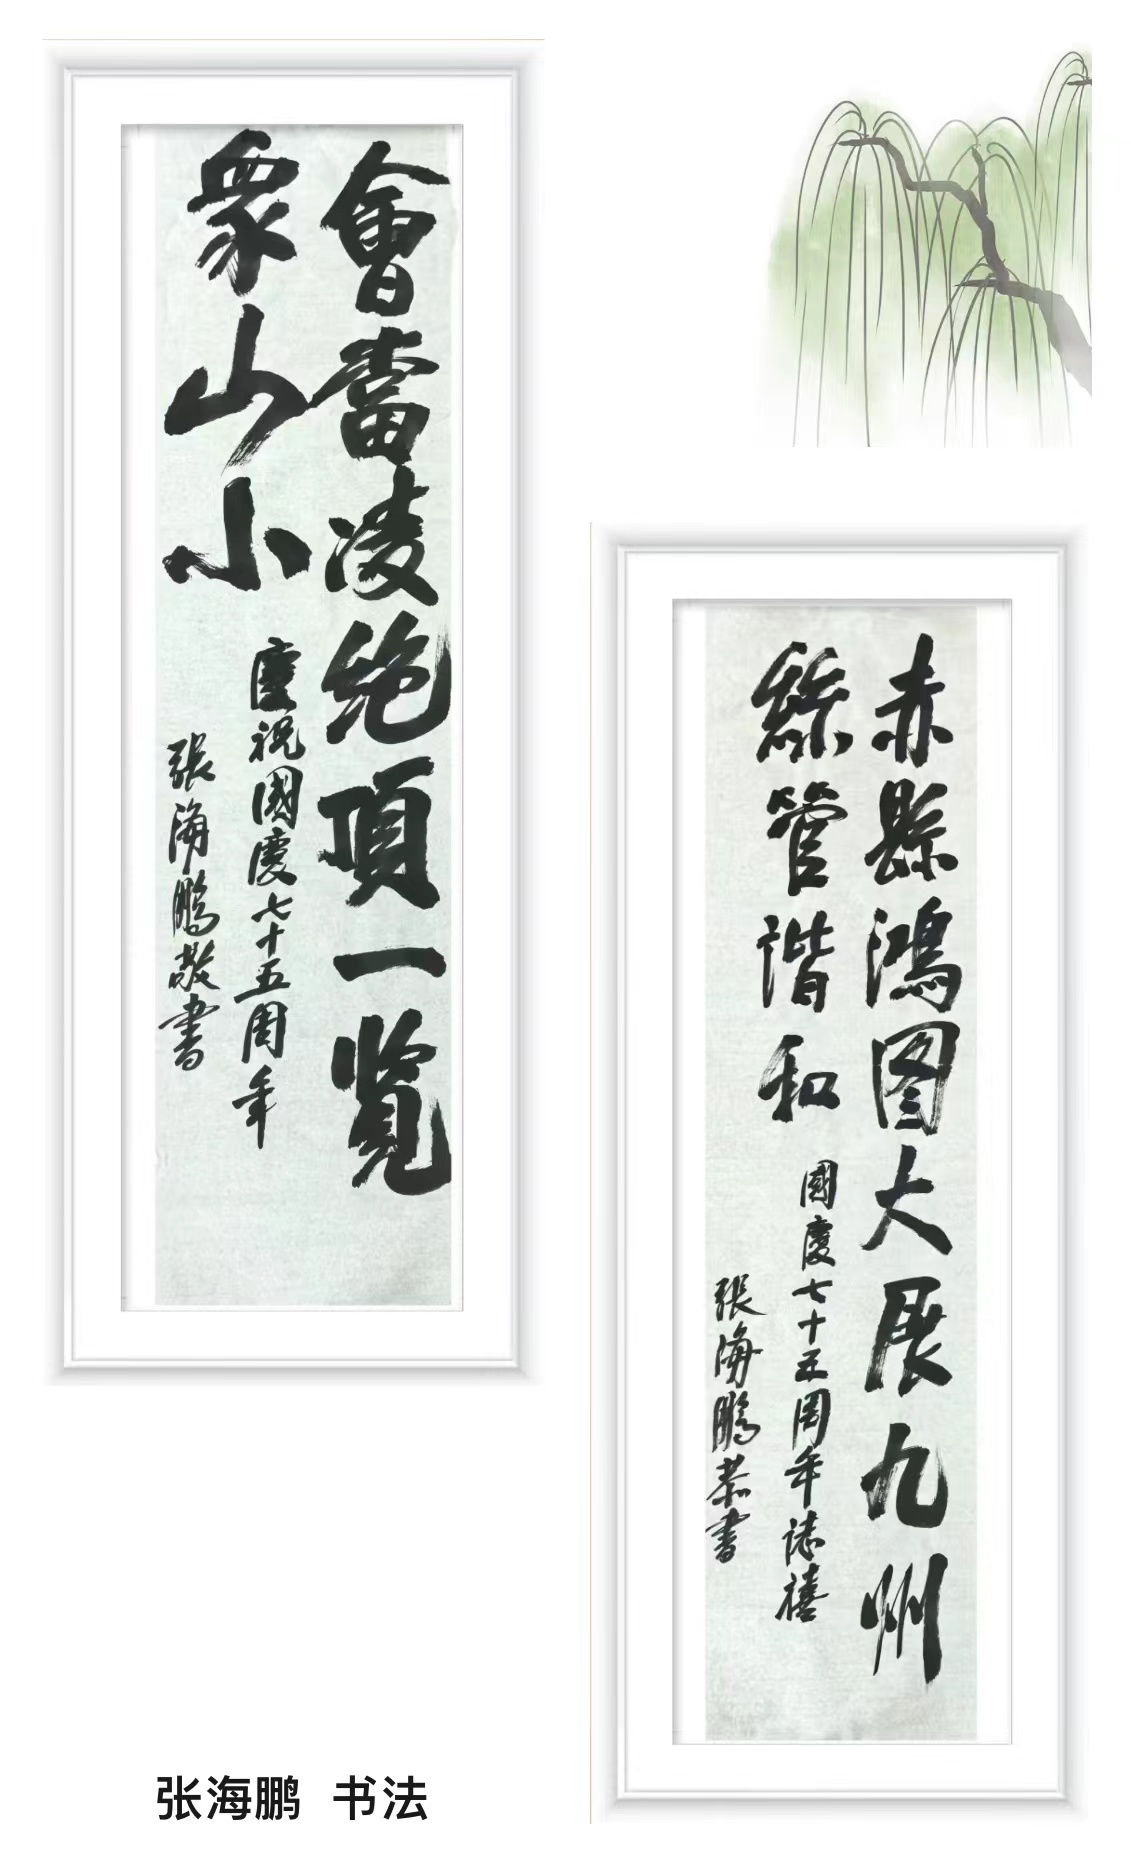 會當凌絶頂一覽
衆山小
慶祝國慶七十五周年
張海鵬敬書
赤縣鴻图大展九州
繇管谐和
國慶七十五周年誌禧
張海鵬恭書
张海鹏 书法